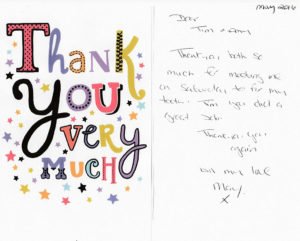 Thank
You
very
much
May 2016
Dear
Tim & Amy
Thank you both so
much for meeting me
on Saturday to fix my
tooth. Tim you did a
good job.
Thank you
again
with my love
Mary.
x